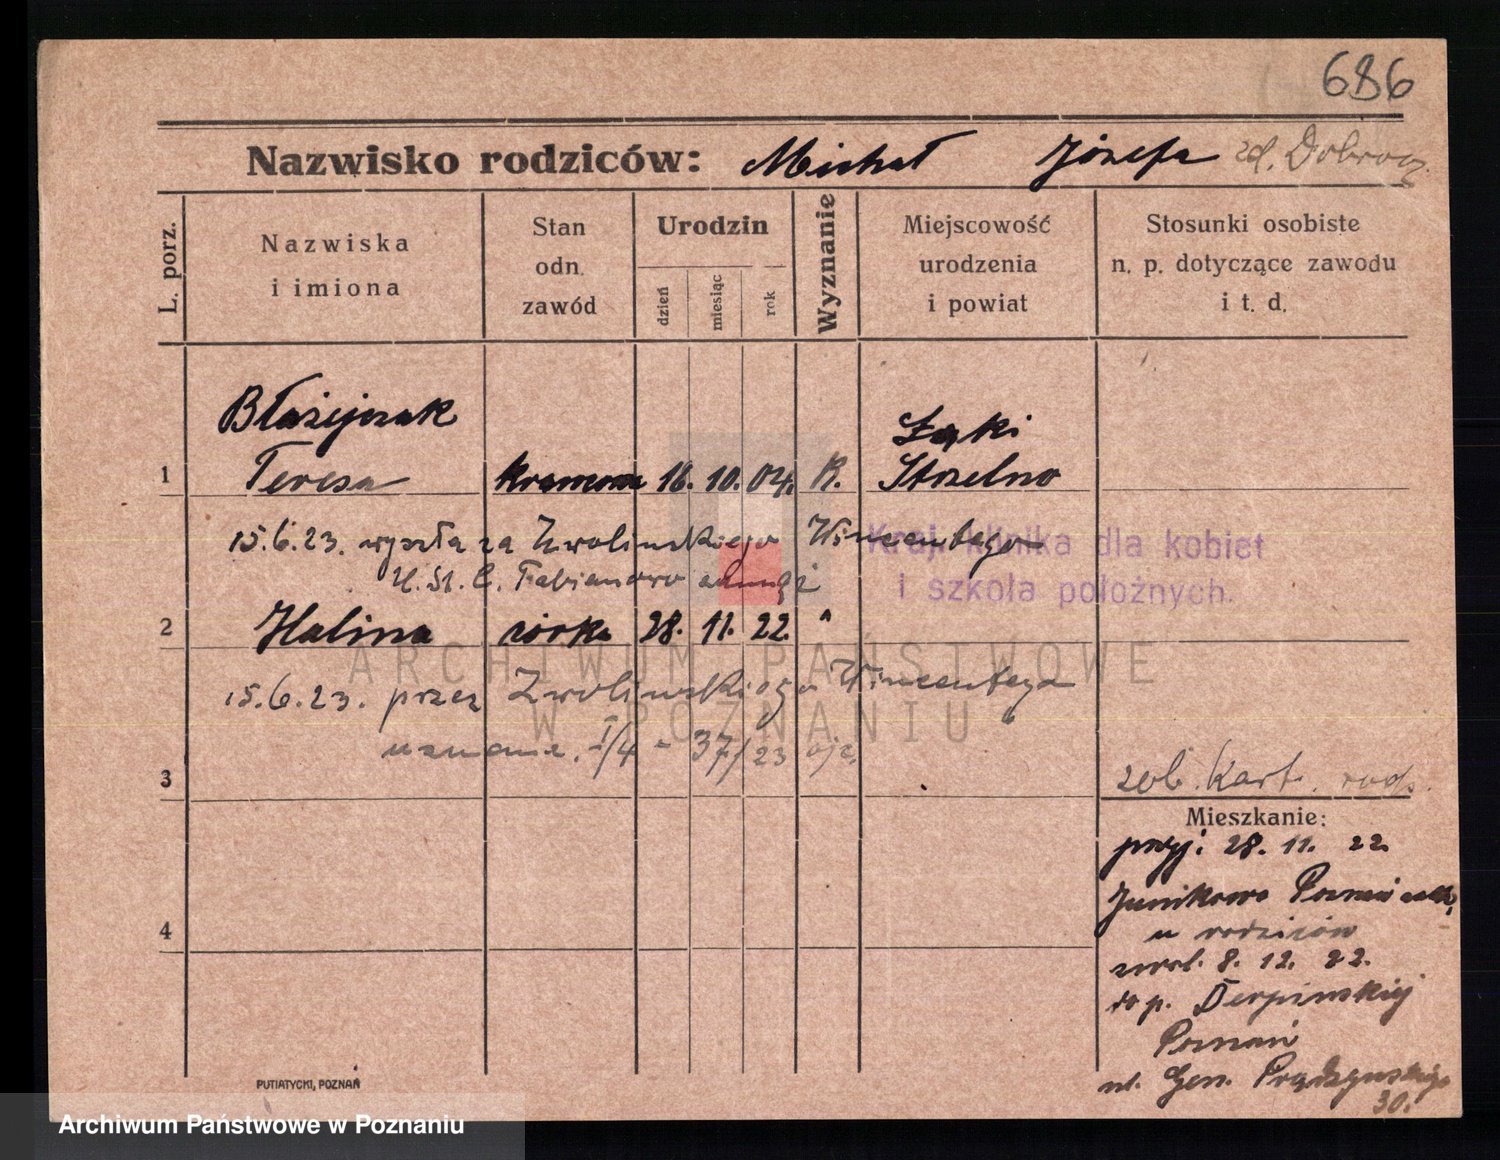 686
Nazwisko rodziców: Michał Józefa zd.
L. porz.
Nazwiska i imiona
Stan odn. zawód
Urodzin
dzień
miesiąc
rok
Wyznanie
Miejscowość urodzenia i powiat
Stosunki osobiste n. p. dotyczące zawodu i t. d.
Błażejczak Łąki
1 Teresa krawcowa 16. 10. 04. R. Strzelno
15.6.23. wyszła za Zwolińskiego Wincentego
Kraj. klinika dla kobiet
i szkoła położnych.
U. St. C. Fabianowo
2 Halina córka 28. 11. 22. "
ARCHIWUM PAŃSTWOWE
15.6.23. przez Zwolińskiego Wincentego
W POZNANIU
uznanie. I/4 - 37/23
3
zob. Kart. rodz.
Mieszkanie:
przyj: 28. 11. 22.
Junikowo Poznań
4
u rodziców
8. 12. 22.
do p. Cierpińskiej
Poznań
ul. Gen. Prądzyńskiego
30.
PUTIATYCKI, POZNAŃ
Archiwum Państwowe w Poznaniu